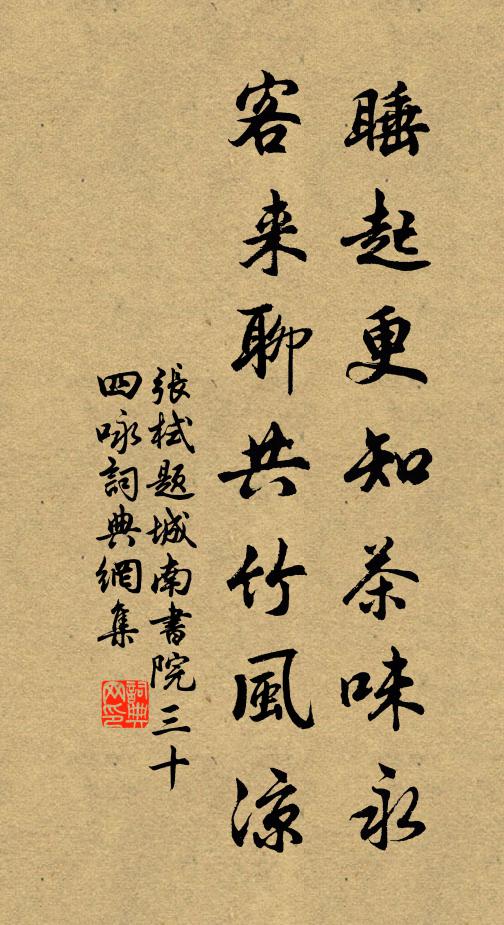 睡起更知茶味永
客来聊共竹風涼
張栻題城南書院三十
四咏詞典網集
詞典
网印